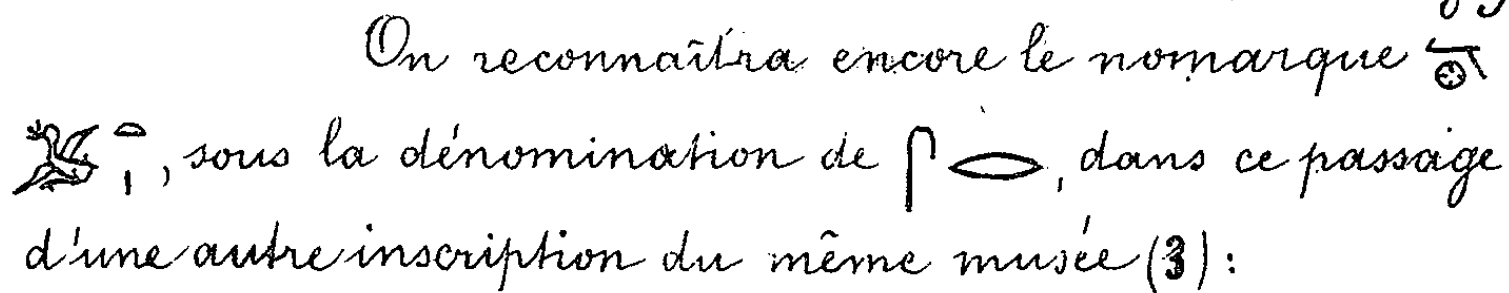 On reconnaîtra encore le nomarque
, sous la dénomination de 𓋴 𓂋, dans ce passage
d'une autre inscription du même musée (3) :